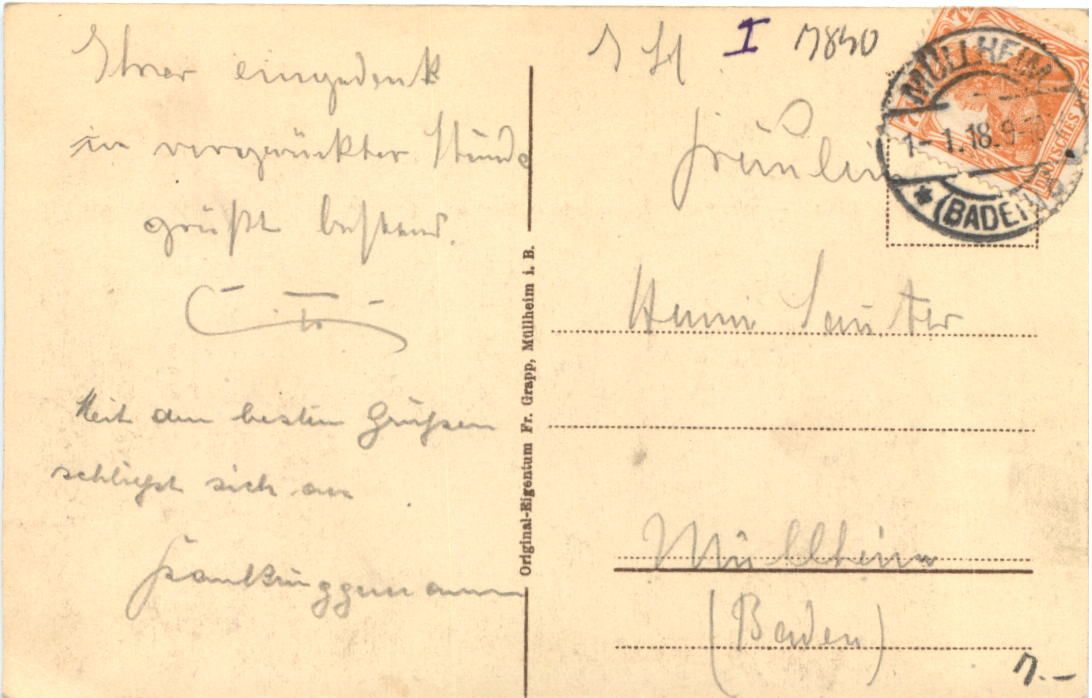 Ihrer eingedenk
in vorgerückter Stunde
grüßt bestens.
Mit den besten Grüssen
schliesst sich an
Original-Eigentum Fr. Grapp, Müllheim i. B.
I 7840
MÜLLHEIM
1-1.18.
* (BADEN)
Fräulein
Sauter
Müllheim
(Baden)